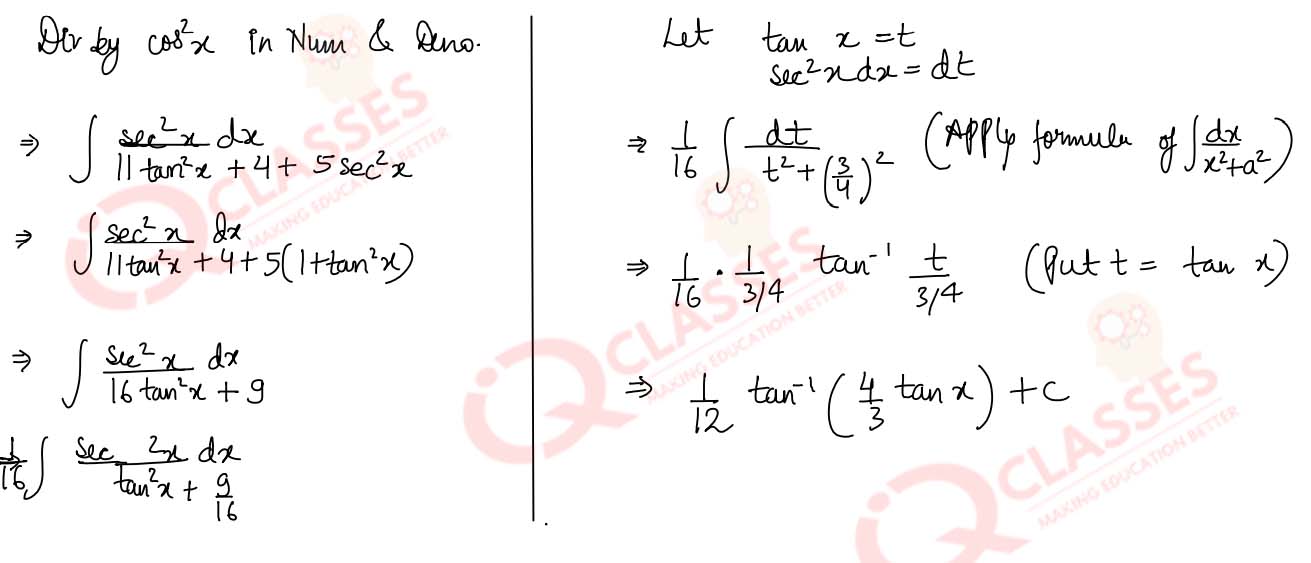 Div by cos²x in Num & Deno.
⇒ ∫ sec²x dx / 11tan²x + 4 + 5sec²x
⇒ ∫ sec²x dx / 11tan²x + 4 + 5(1+tan²x)
⇒ ∫ sec²x dx / 16tan²x + 9
⇒ 1/16 ∫ sec 2x dx / tan²x + 9/16
Let tan x = t
sec²x dx = dt
⇒ 1/16 ∫ dt / t² + (3/4)² (Apply formula of ∫ dx / x²+a²)
⇒ 1/16 · 1/3/4 tan⁻¹ t/3/4 (Put t = tan x)
⇒ 1/12 tan⁻¹ (4/3 tan x) + c
CLASSES
MAKING EDUCATION BETTER
CLASSES
MAKING EDUCATION BETTER
CLASSES
MAKING EDUCATION BETTER